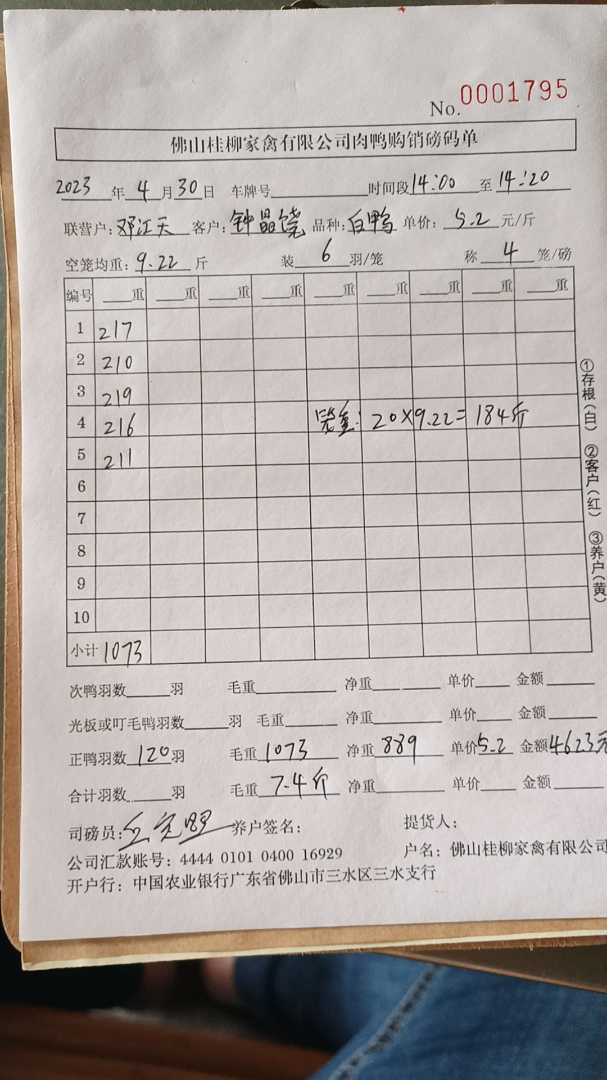 No. 0001795
佛山桂柳家禽有限公司肉鸭购销磅码单
2023 年 4 月 30 日 车牌号 时间段 14:00 至 14:20
联营户: 邓江天 客户: 钟晶饶 品种: 白鸭 单价: 5.2 元/斤
空笼均重: 9.22 斤 装 6 羽/笼 称 4 笼/磅
编号 重 重 重 重 重 重 重 重 重
1 217
2 210
3 219
4 216 笼重: 20×9.22=184斤
5 211
6
7
8
9
10
小计 1073
次鸭羽数 羽 毛重 净重 单价 金额
光板或叮毛鸭羽数 羽 毛重 净重 单价 金额
正鸭羽数 120 羽 毛重 1073 净重 889 单价 5.2 金额 4623元
合计羽数 羽 毛重 7.4斤 净重 单价 金额
司磅员: 养户签名: 提货人:
公司汇款账号: 4444 0101 0400 16929 户名: 佛山桂柳家禽有限公司
开户行: 中国农业银行广东省佛山市三水区三水支行
①存根(白) ②客户(红) ③养户(黄)